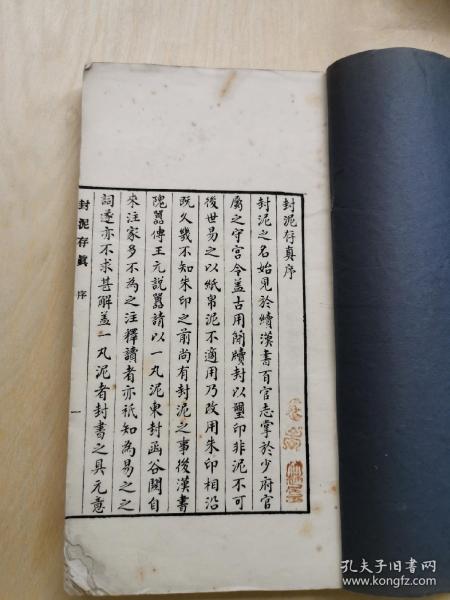 封泥存真序
封泥之名始見於續漢書百官志掌於少府官
屬之守宮令蓋古用簡牘封以璽印非泥不可
後世易之以紙帛泥不適用乃改用朱印相沿
既久幾不知朱印之前尚有封泥之事後漢書
隗囂傳王元說囂請以一丸泥東封函谷關自
來注家多不為之注釋讀者亦祇知為易之之
詞遂亦不求甚解蓋一丸泥者封書之具元意
封泥存真 序
一
孔夫子旧书网
www.kongfz.com